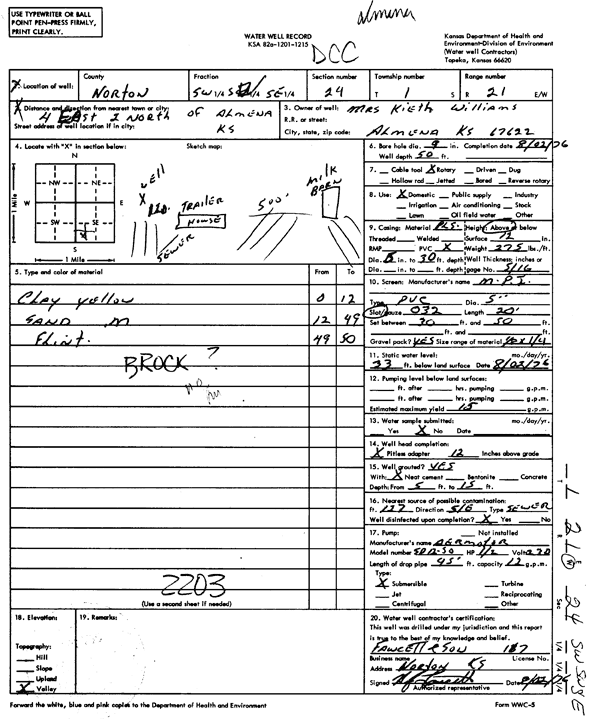 almena
USE TYPEWRITER OR BALL
POINT PEN-PRESS FIRMLY,
PRINT CLEARLY.
WATER WELL RECORD
KSA 82a-1201-1215
DCC
Kansas Department of Health and
Environment-Division of Environment
(Water well Contractors)
Topeka, Kansas 66620
1. Location of well:
County
NORTON
Fraction
SW 1/4 SE 1/4 SE 1/4
Section number
24
Township number
T 1 S
Range number
R 21 E/W
2. Distance and direction from nearest town or city:
4 EAST 2 NORTH OF ALMENA
KS
Street address of well location if in city:
3. Owner of well: MRS Kieth Williams
R.R. or street:
City, state, zip code: ALMENA KS 67622
4. Locate with "X" in section below:
Sketch map:
N
NW NE
W E
SW SE
S
1 Mile
1 Mile
WELL
X
TRAILER
HOUSE
500'
MILK
BARN
SEWER
6. Bore hole dia. 9 in. Completion date 8/02/76
Well depth 50 ft.
7. Cable tool X Rotary Driven Dug
Hollow rod Jetted Bored Reverse rotary
8. Use: X Domestic Public supply Industry
Irrigation Air conditioning Stock
Lawn Oil field water Other
9. Casing: Material PLS. Height: Above or below
Threaded Welded Surface 12 in.
RMP PVC X Weight 275 lbs./ft.
Dia. 5 in. to 30 ft. depth Wall Thickness: inches or
Dia. in. to ft. depth gage No. 5/16
10. Screen: Manufacturer's name M.P.I.
Type PVC Dia. 5"
Slot/gauze .032 Length 20'
Set between 30 ft. and 50 ft.
ft. and ft.
Gravel pack? YES Size range of material 1/4
11. Static water level: mo./day/yr.
33 ft. below land surface Date 8/02/76
12. Pumping level below land surfaces:
ft. after hrs. pumping g.p.m.
ft. after hrs. pumping g.p.m.
Estimated maximum yield 15 g.p.m.
13. Water sample submitted: mo./day/yr.
Yes X No Date
14. Well head completion:
X Pitless adapter 12 Inches above grade
15. Well grouted? YES
With: X Neat cement Bentonite Concrete
Depth: From 5 ft. to 15 ft.
16. Nearest source of possible contamination:
ft. 127 Direction S/E Type SEWER
Well disinfected upon completion? X Yes No
17. Pump: Not installed
Manufacturer's name AERMOTOR
Model number SD12-50 HP 1/2 Volts 220
Length of drop pipe 45' ft. capacity 12 g.p.m.
Type:
X Submersible Turbine
Jet Reciprocating
Centrifugal Other
5. Type and color of material From To
Clay yellow 0 12
SAND M 12 49
Flint. 49 50
BROCK ?
2203
(Use a second sheet if needed)
18. Elevation:
Topography:
Hill
Slope
Upland
X Valley
19. Remarks:
20. Water well contractor's certification:
This well was drilled under my jurisdiction and this report
is true to the best of my knowledge and belief.
FAWCETT & SON 187
Business name License No.
Address NORTON KS
Signed Date
Authorized representative
Forward the white, blue and pink copies to the Department of Health and Environment
Form WWC-5
T R Sec 1/4 1/4 1/4
1 21 W 24 SW SE SE